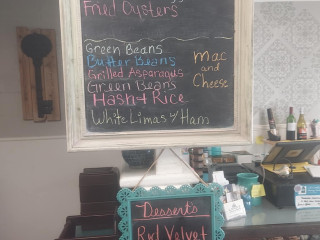 Fried Oysters
Green Beans
Butter Beans
Grilled Asparagus
Green Beans
Hash + Rice
White Limas w/ Ham
Mac
and
Cheese
Desserts
Red Velvet